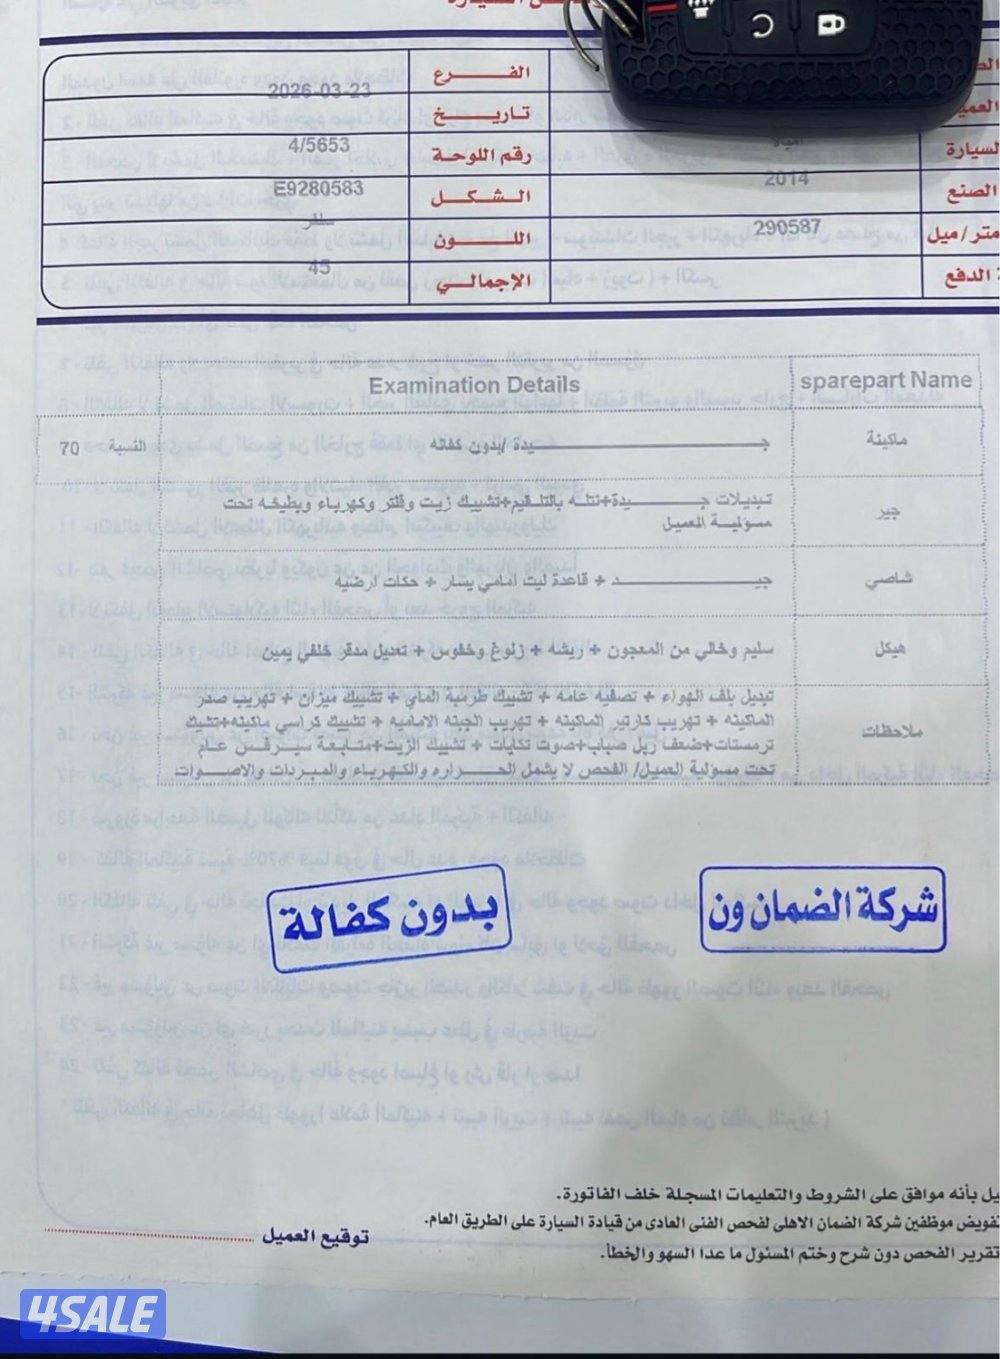 الفـــرع
تاريــخ
2026-03-23
رقم اللوحة
4/5653
السيارة
الشـكـل
E9280583
الصنع
2014
اللــون
متر/ميل
290587
الإجمالـي
45
الدفع
sparepart Name
Examination Details
ماكينة
جـــــيدة /بدون كفاله
النسبة 70
جير
تبديلات جـــــيدة+نتله بالتلقيم+تشييك زيت وفلتر وكهرباء وبطخه تحت
مسؤلية العميل
شاصي
جيـــــد + قاعدة ليت امامي يسار + حكات ارضيه
هيكل
سليم وخالي من المعجون + ريشه + زلوغ وخفوس + تعديل مدقر خلفي يمين
ملاحظات
تبديل بلف الهواء + تصفيه عامه + تشييك طرمبة الماي + تشييك ميزان + تهريب صدر
الماكينه + تهريب كارتير الماكينه + تهريب الجبنه الاماميه + تشييك كراسي ماكينه+تشيك
ترمستات+ضعف ربل صباب+صوت تكايات + تشييك الزيت+متابعة سيرفس عام
تحت مسؤلية العميل/ الفحص لا يشمل الحـــراره والكهرباء والمبردات والاصوات
شركة الضمان ون
بدون كفالة
بأنه موافق على الشروط والتعليمات المسجلة خلف الفاتورة.
تفويض موظفين شركة الضمان الاهلى لفحص الفنى العادى من قيادة السيارة على الطريق العام.
تقرير الفحص دون شرح وختم المسئول ما عدا السهو والخطأ.
توقيع العميل
4SALE